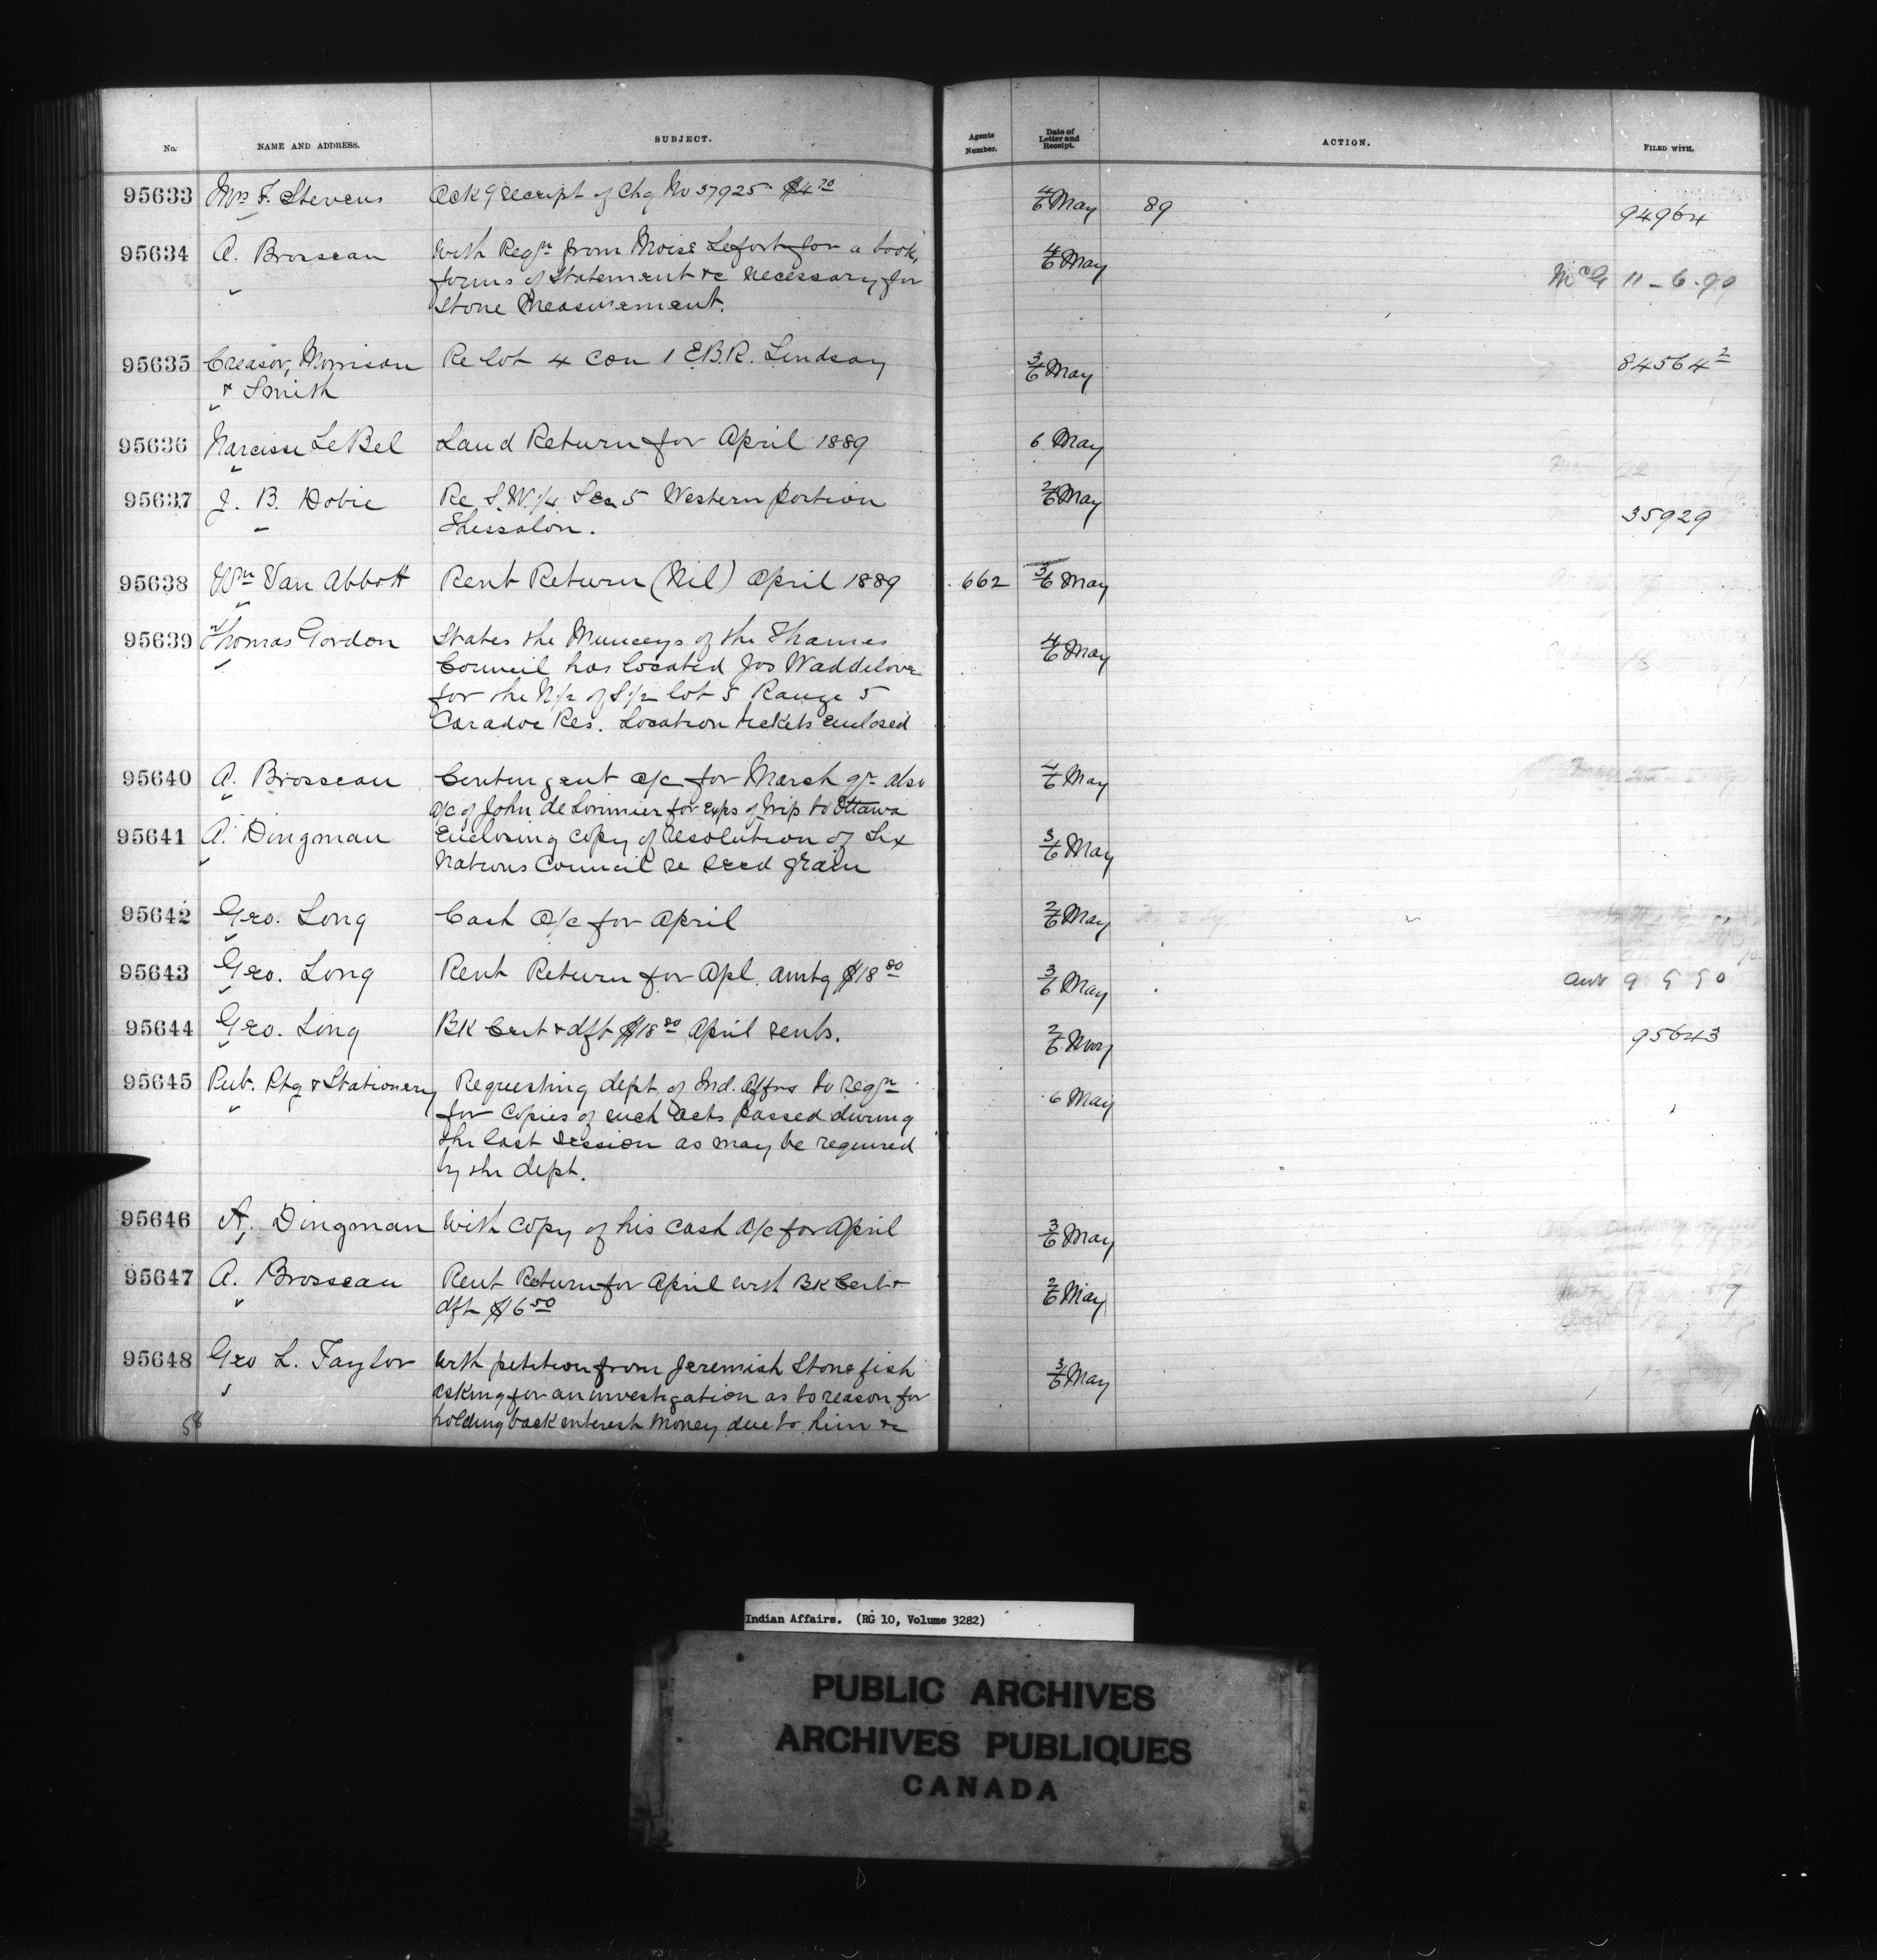 No. NAME AND ADDRESS. SUBJECT. Agents Number. Date of Letter and Receipt. ACTION. FILED WITH.
95633 Mrs F. Stevens Ackg receipt of Chq No 37925 $4 70 4/6 May 89 94964
95634 A. Brosseau With Reqn from Moise Lefort for a book, 4/6 May
forms of Statement &c necessary for McG 11-6-90
Stone Measurement.
95635 Creasor, Morrison Re lot 4 Con 1 E.B.R. Lindsay 3/6 May 84564 2
& Smith
95636 Narcisse LeBel Land Return for April 1889 6 May
95637 J. B. Dobie Re S.W. 1/4 Sec 5 Western portion 2/6 May
Thessalon. 35929
95638 Wm Van Abbott Rent Return (Nil) April 1889 662 3/6 May
95639 Thomas Gordon States the Munceys of the Thames 4/6 May
Council has located Jos Waddilove
for the N 1/2 of S 1/2 lot 5 Range 5
Caradoc Res. Location tickets enclosed
95640 A. Brosseau Contingent a/c for March qr also 4/6 May
a/c of John de Lorimier for exps of trip to Ottawa
95641 A. Dingman Enclosing copy of resolution of Six 3/6 May
Nations Council re seed grain
95642 Geo. Long Cash a/c for April 2/6 May
95643 Geo. Long Rent Return for Apl. amtg $18 80 3/6 May
95644 Geo. Long BK Cert & dft $18 80 April rents. 2/6 May 95643
95645 Pub. Ptg & Stationery Requesting dept. of Ind. Affrs to reqn 6 May
for copies of such acts passed during
the last session as may be required
by the dept.
95646 A. Dingman With copy of his cash a/c for April 3/6 May
95647 A. Brosseau Rent Return for April with BK Cert & 2/6 May
dft $6 50
95648 Geo L. Taylor With petition from Jeremiah Stonefish 3/6 May
asking for an investigation as to reason for
holding back interest money due to him &c
58
Indian Affairs. (RG 10, Volume 3282)
PUBLIC ARCHIVES
ARCHIVES PUBLIQUES
CANADA